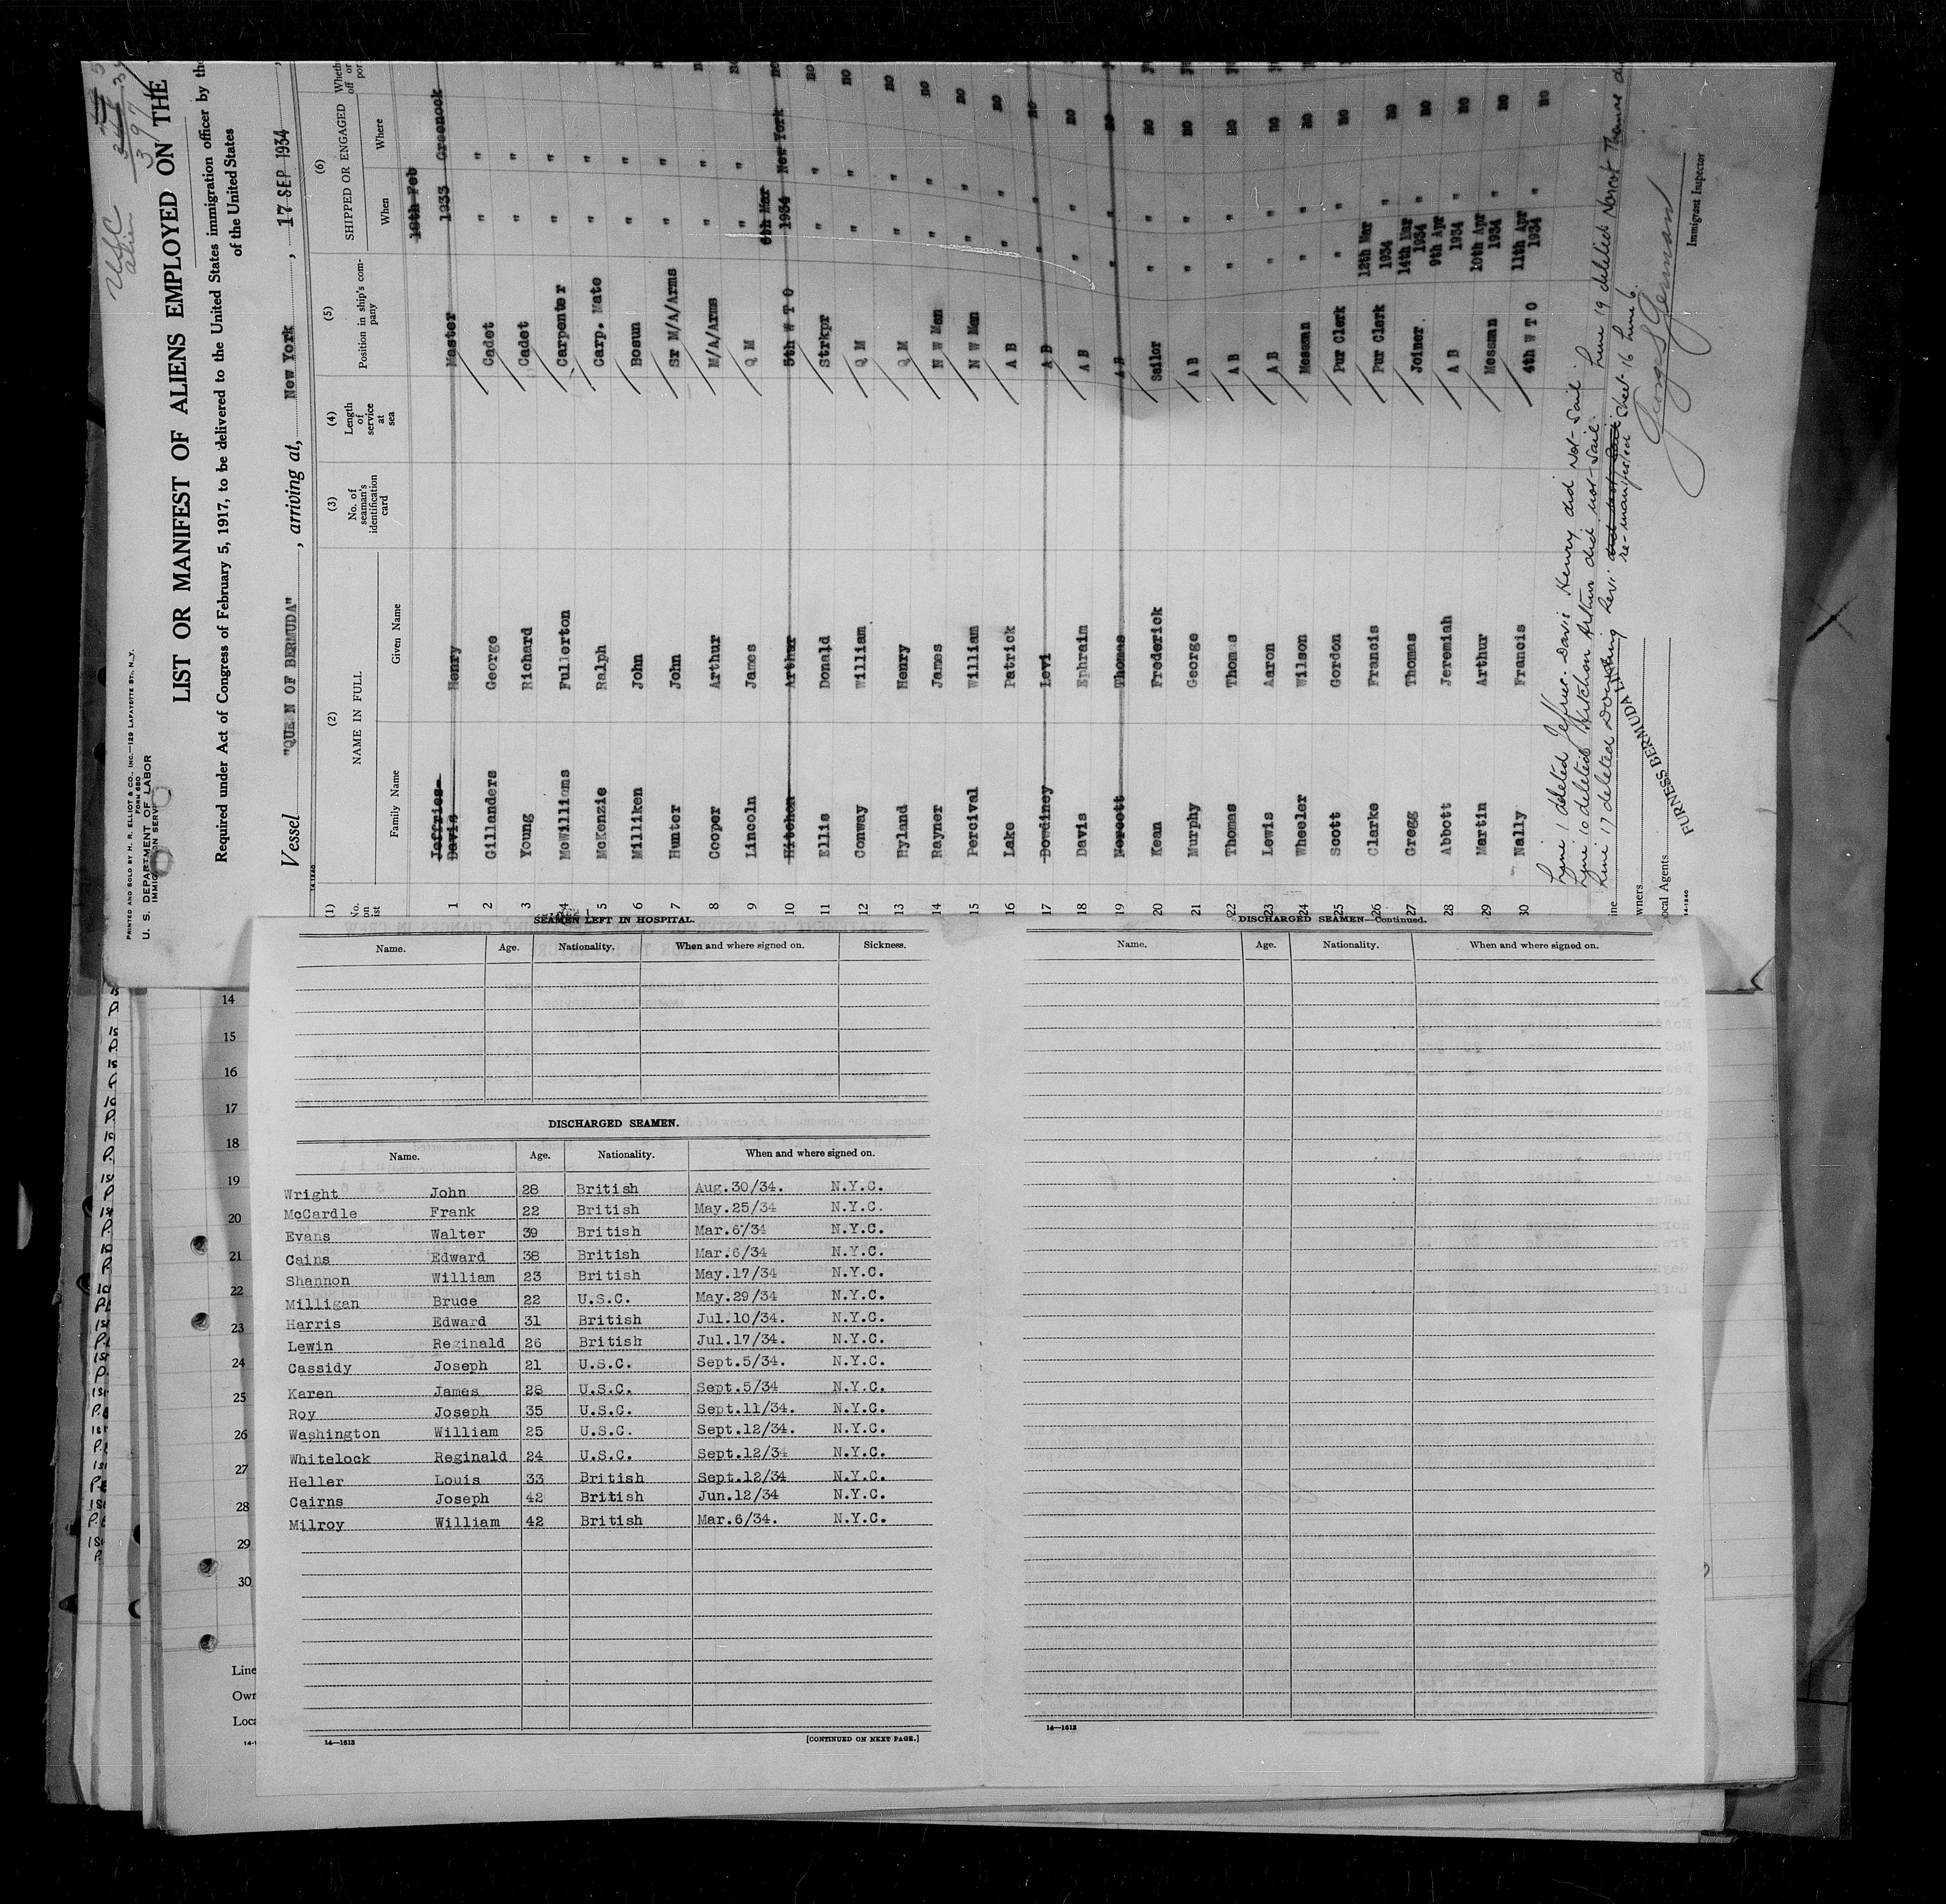 PRINTED AND SOLD BY H. R. ELLIOT & CO., INC.—129 LAFAYETTE ST., N. Y.
FORM 680
U. S. DEPARTMENT OF LABOR
IMMIGRATION SERVICE
397
LIST OR MANIFEST OF ALIENS EMPLOYED ON THE
Required under Act of Congress of February 5, 1917, to be delivered to the United States immigration officer by the
of the United States
Vessel "QUEEN OF BERMUDA", arriving at, New York, 17 SEP 1934,
(1) (2) (3) (4) (5) (6)
No. on list NAME IN FULL No. of seaman's identification card Length of service at sea Position in ship's company SHIPPED OR ENGAGED
Family Name Given Name When Where
Jeffries- 18th Feb
1 Davis Henry Master 1933 Greenock
2 Gillanders George Cadet " "
3 Young Richard Cadet " "
4 McWilliams Fullerton Carpenter " "
5 McKenzie Ralph Carp. Mate " "
6 Milliken John Bosun " "
7 Hunter John Sr M/A/Arms " "
8 Cooper Arthur M/A/Arms " "
9 Lincoln James Q M " "
6th Mar
10 Hitchon Arthur 5th W T O 1934 New York no
11 Ellis Donald Strkpr " " no
12 Conway William Q M " " no
13 Hyland Henry Q M " " no
14 Rayner James N W Man " " no
15 Percival William N W Man " " no
16 Lake Patrick A B " " no
17 Dowdiney Levi A B " " no
18 Davis Ephraim A B " " no
19 Norcott Thomas A B " " no
20 Kean Frederick Sailor " " no
21 Murphy George A B " " no
22 Thomas Thomas A B " " no
23 Lewis Aaron A B " " no
24 Wheeler Wilson Messman " " no
25 Scott Gordon Pur Clerk " " no
26 Clarke Francis Pur Clerk 12th Mar 1934 " no
27 Gregg Thomas Joiner 14th Mar 1934 " no
28 Abbott Jeremiah A B 9th Apr 1934 " no
29 Martin Arthur Messman 10th Apr 1934 " no
30 Nally Francis 4th W T O 11th Apr 1934 " no
Line 1 deleted Jeffries-Davis Henry did not sail.
Line 10 deleted Hitchon Arthur did not sail. Line 19 deleted Norcot Thomas
Line 17 deleted Levi did not sail sheet 16 line 6.
re-manifested
FURNESS BERMUDA LINE
Owners
Local Agents
14-1240
George S German
Immigrant Inspector
SEAMEN LEFT IN HOSPITAL.
Name. Age. Nationality. When and where signed on. Sickness.
DISCHARGED SEAMEN.
Name. Age. Nationality. When and where signed on.
Wright John 28 British Aug.30/34. N.Y.C.
McCardle Frank 22 British May.25/34 N.Y.C.
Evans Walter 39 British Mar.6/34 N.Y.C.
Cains Edward 38 British Mar.6/34 N.Y.C.
Shannon William 23 British May.17/34 N.Y.C.
Milligan Bruce 22 U.S.C. May.29/34 N.Y.C.
Harris Edward 31 British Jul.10/34. N.Y.C.
Lewin Reginald 26 British Jul.17/34. N.Y.C.
Cassidy Joseph 21 U.S.C. Sept.5/34. N.Y.C.
Karen James 28 U.S.C. Sept.5/34 N.Y.C.
Roy Joseph 35 U.S.C. Sept.11/34. N.Y.C.
Washington William 25 U.S.C. Sept.12/34. N.Y.C.
Whitelock Reginald 24 U.S.C. Sept.12/34 N.Y.C.
Heller Louis 33 British Sept.12/34 N.Y.C.
Cairns Joseph 42 British Jun.12/34 N.Y.C.
Milroy William 42 British Mar.6/34. N.Y.C.
14—1613
[CONTINUED ON NEXT PAGE.]
DISCHARGED SEAMEN—Continued.
Name. Age. Nationality. When and where signed on.
14—1613
14
15
16
17
18
19
20
21
22
23
24
25
26
27
28
29
30
Line